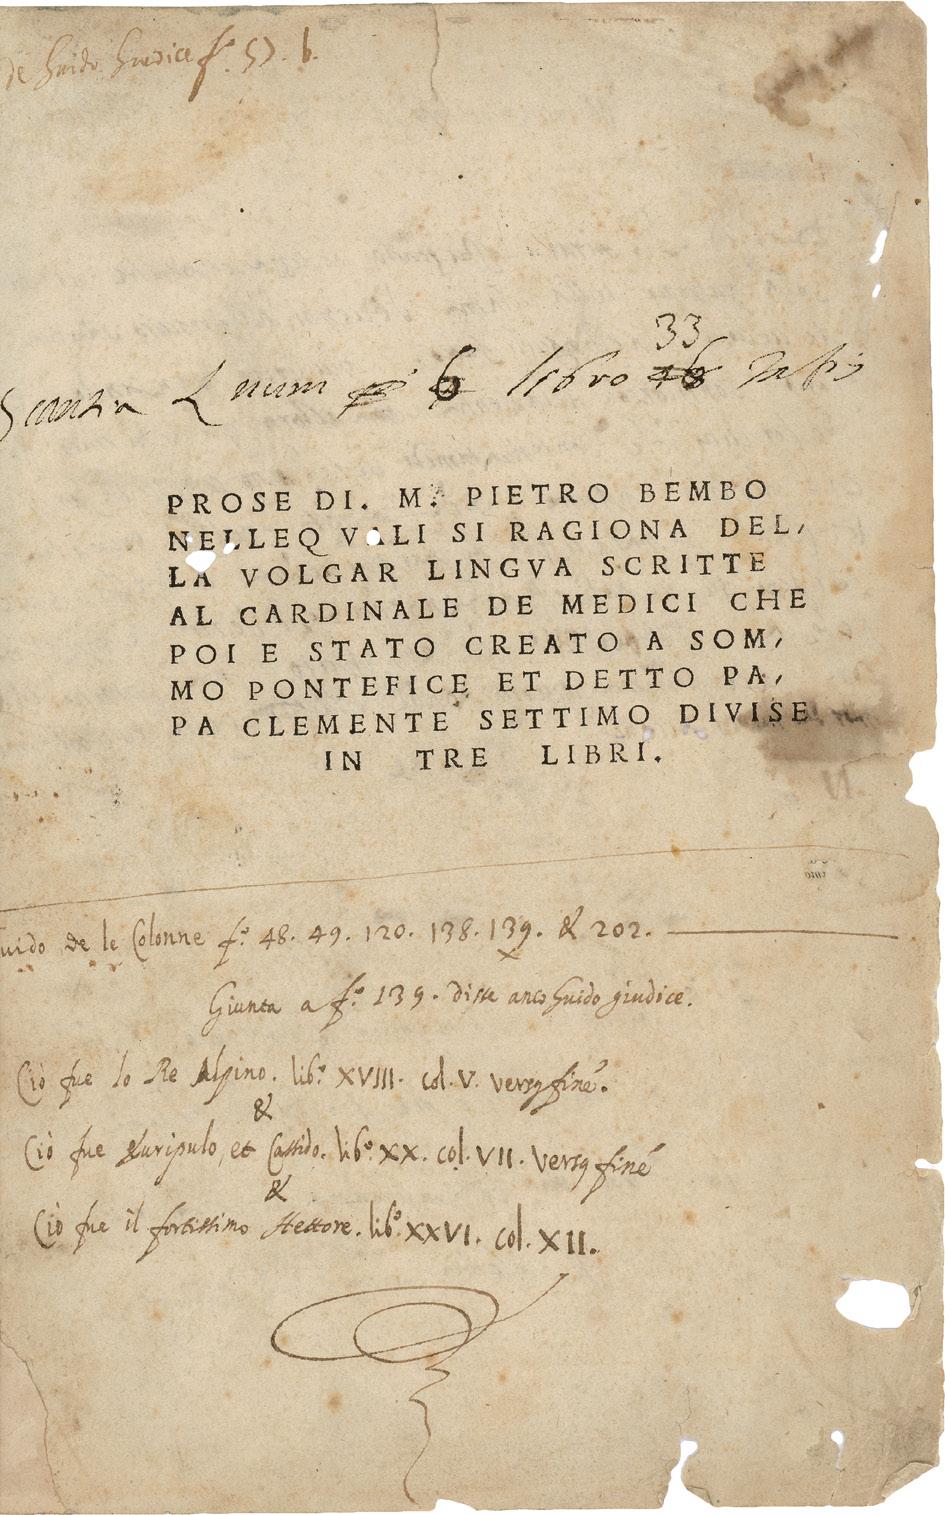 de Guido Giudice fº. 57. b.
33
Scantia L num 6 libro 48
PROSE DI. M. PIETRO BEMBO
NELLEQ VALI SI RAGIONA DEL,
LA VOLGAR LINGVA SCRITTE
AL CARDINALE DE MEDICI CHE
POI E STATO CREATO A SOM,
MO PONTEFICE ET DETTO PA,
PA CLEMENTE SETTIMO DIVISE
IN TRE LIBRI.
Guido de le Colonne fº. 48. 49. 120. 138. 139. & 202.
Giunta a fº. 139. Disse anco Guido giudice.
Ciò fue lo Re Alpino. libº. XVIII. col. V. versq fine.
&
Ciò fue Euripulo, et Cassido. libº. XX. col. VII. versq fine
&
Ciò fue il fortissimo Hettore. libº. XXVI. col. XII.